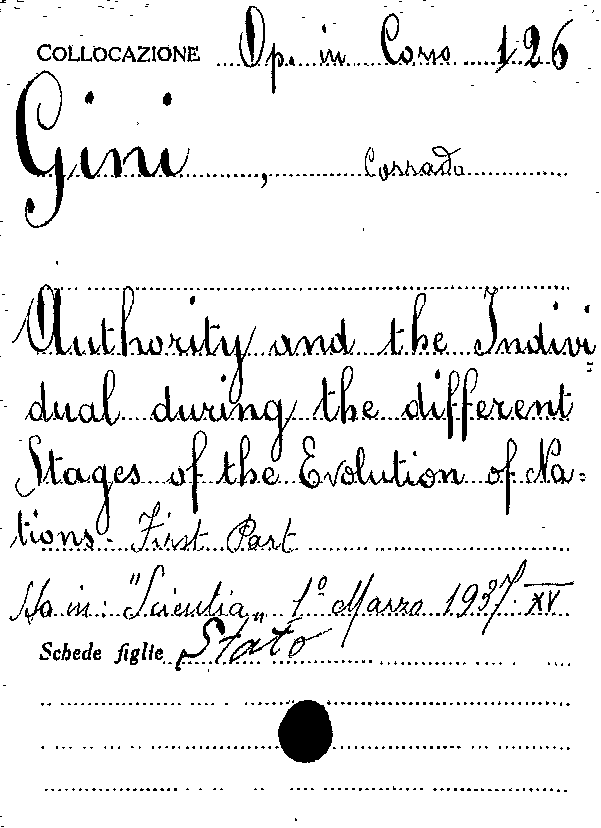 COLLOCAZIONE Op. in Corso 126
Gini, Corrado
Authority and the Indivi=
dual during the different
Stages of the Evolution of Na=
tions. First Part
Sta in: "Scientia„ 1º Marzo 1937 XV
Schede figlie Stato